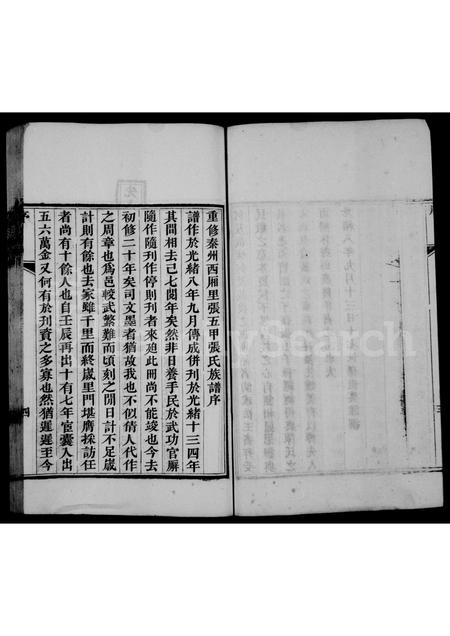 重修秦州西廂里張五甲張氏族譜序
譜作於光緒八年九月傳成併刊於光緒十三四年
其間相去已七閱年矣然非日養手民於武功官廨
隨作隨刊作停則刊者來廵此冊尚不能竣也今去
初修二十年矣司文墨者猶故我也不似倩人代作
之周章也爲邑較武繁難而頃刻之閒日計不足歲
計則有餘也去家雖千里而終歲里門堪膺採訪任
者尚有十餘人也自壬辰再出十有七年宦囊入出
五六萬金又何有於刊資之多寡也然猶遲遲至今
序
四
MySearch